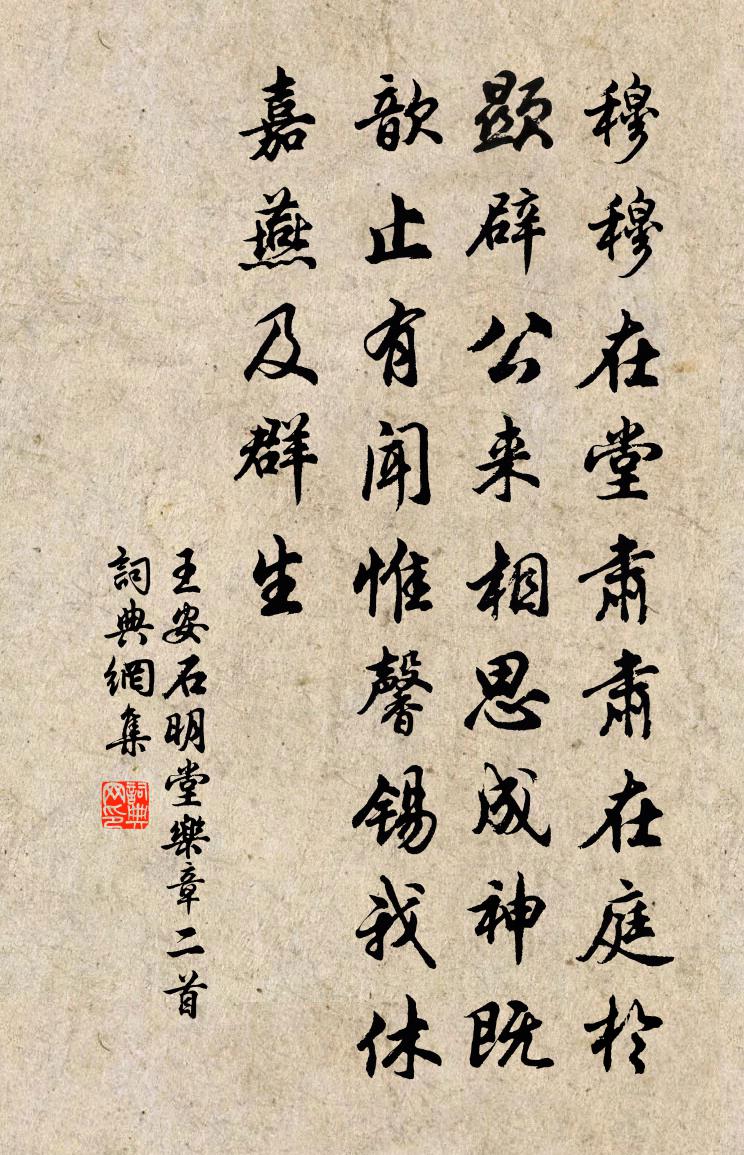 穆穆在堂肃肃在庭於
顕辟公来相思成神既
歆止有闻惟馨锡我休
嘉燕及群生
王安石明堂樂章二首
詞典網集
詞典网印